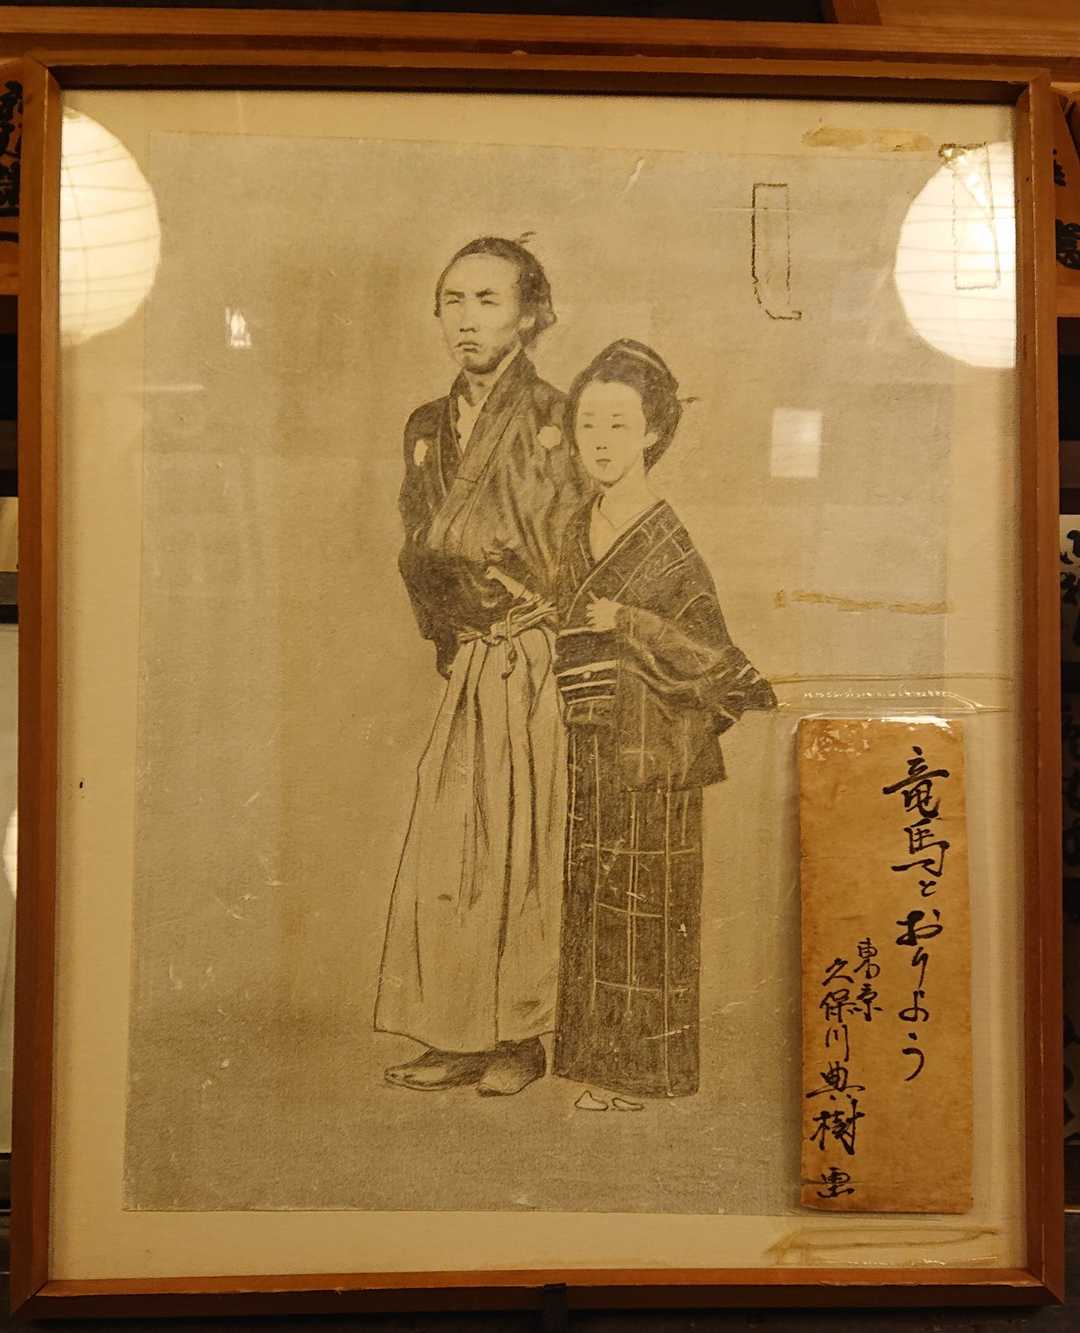 竜馬とおりよう
東京
久保川典樹画